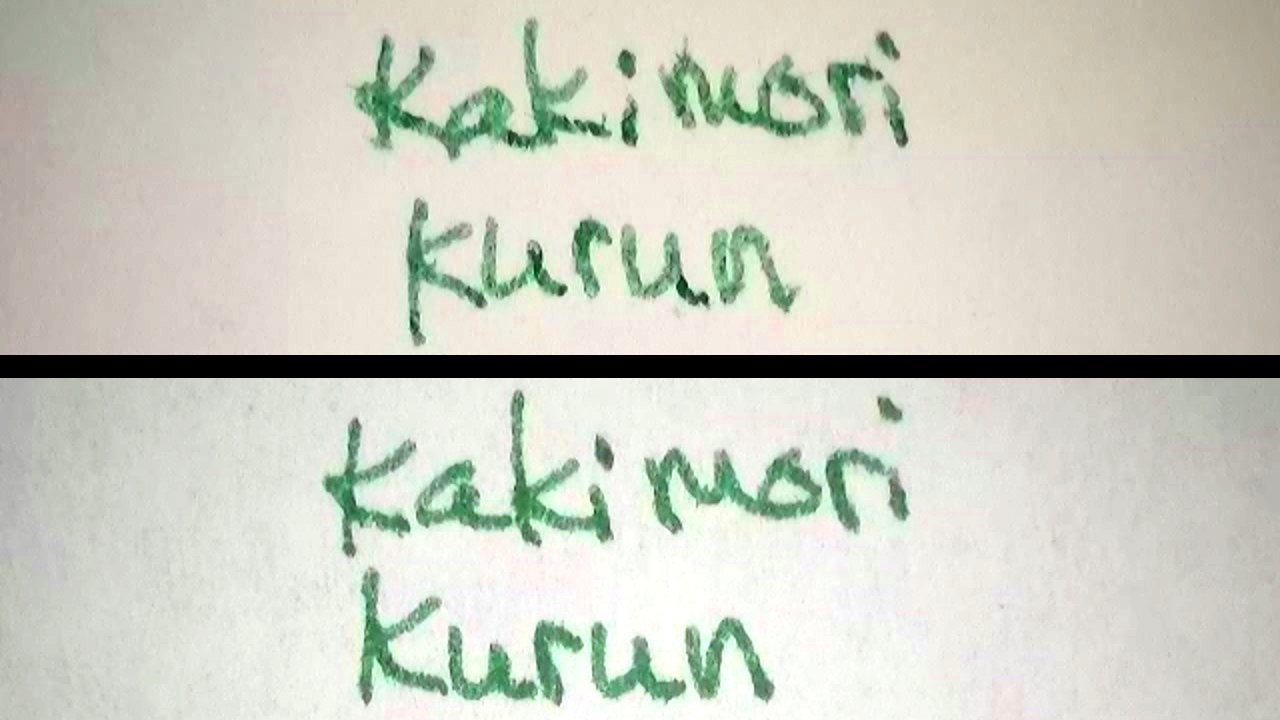 Kakimori
Kurun
Kakimori
Kurun